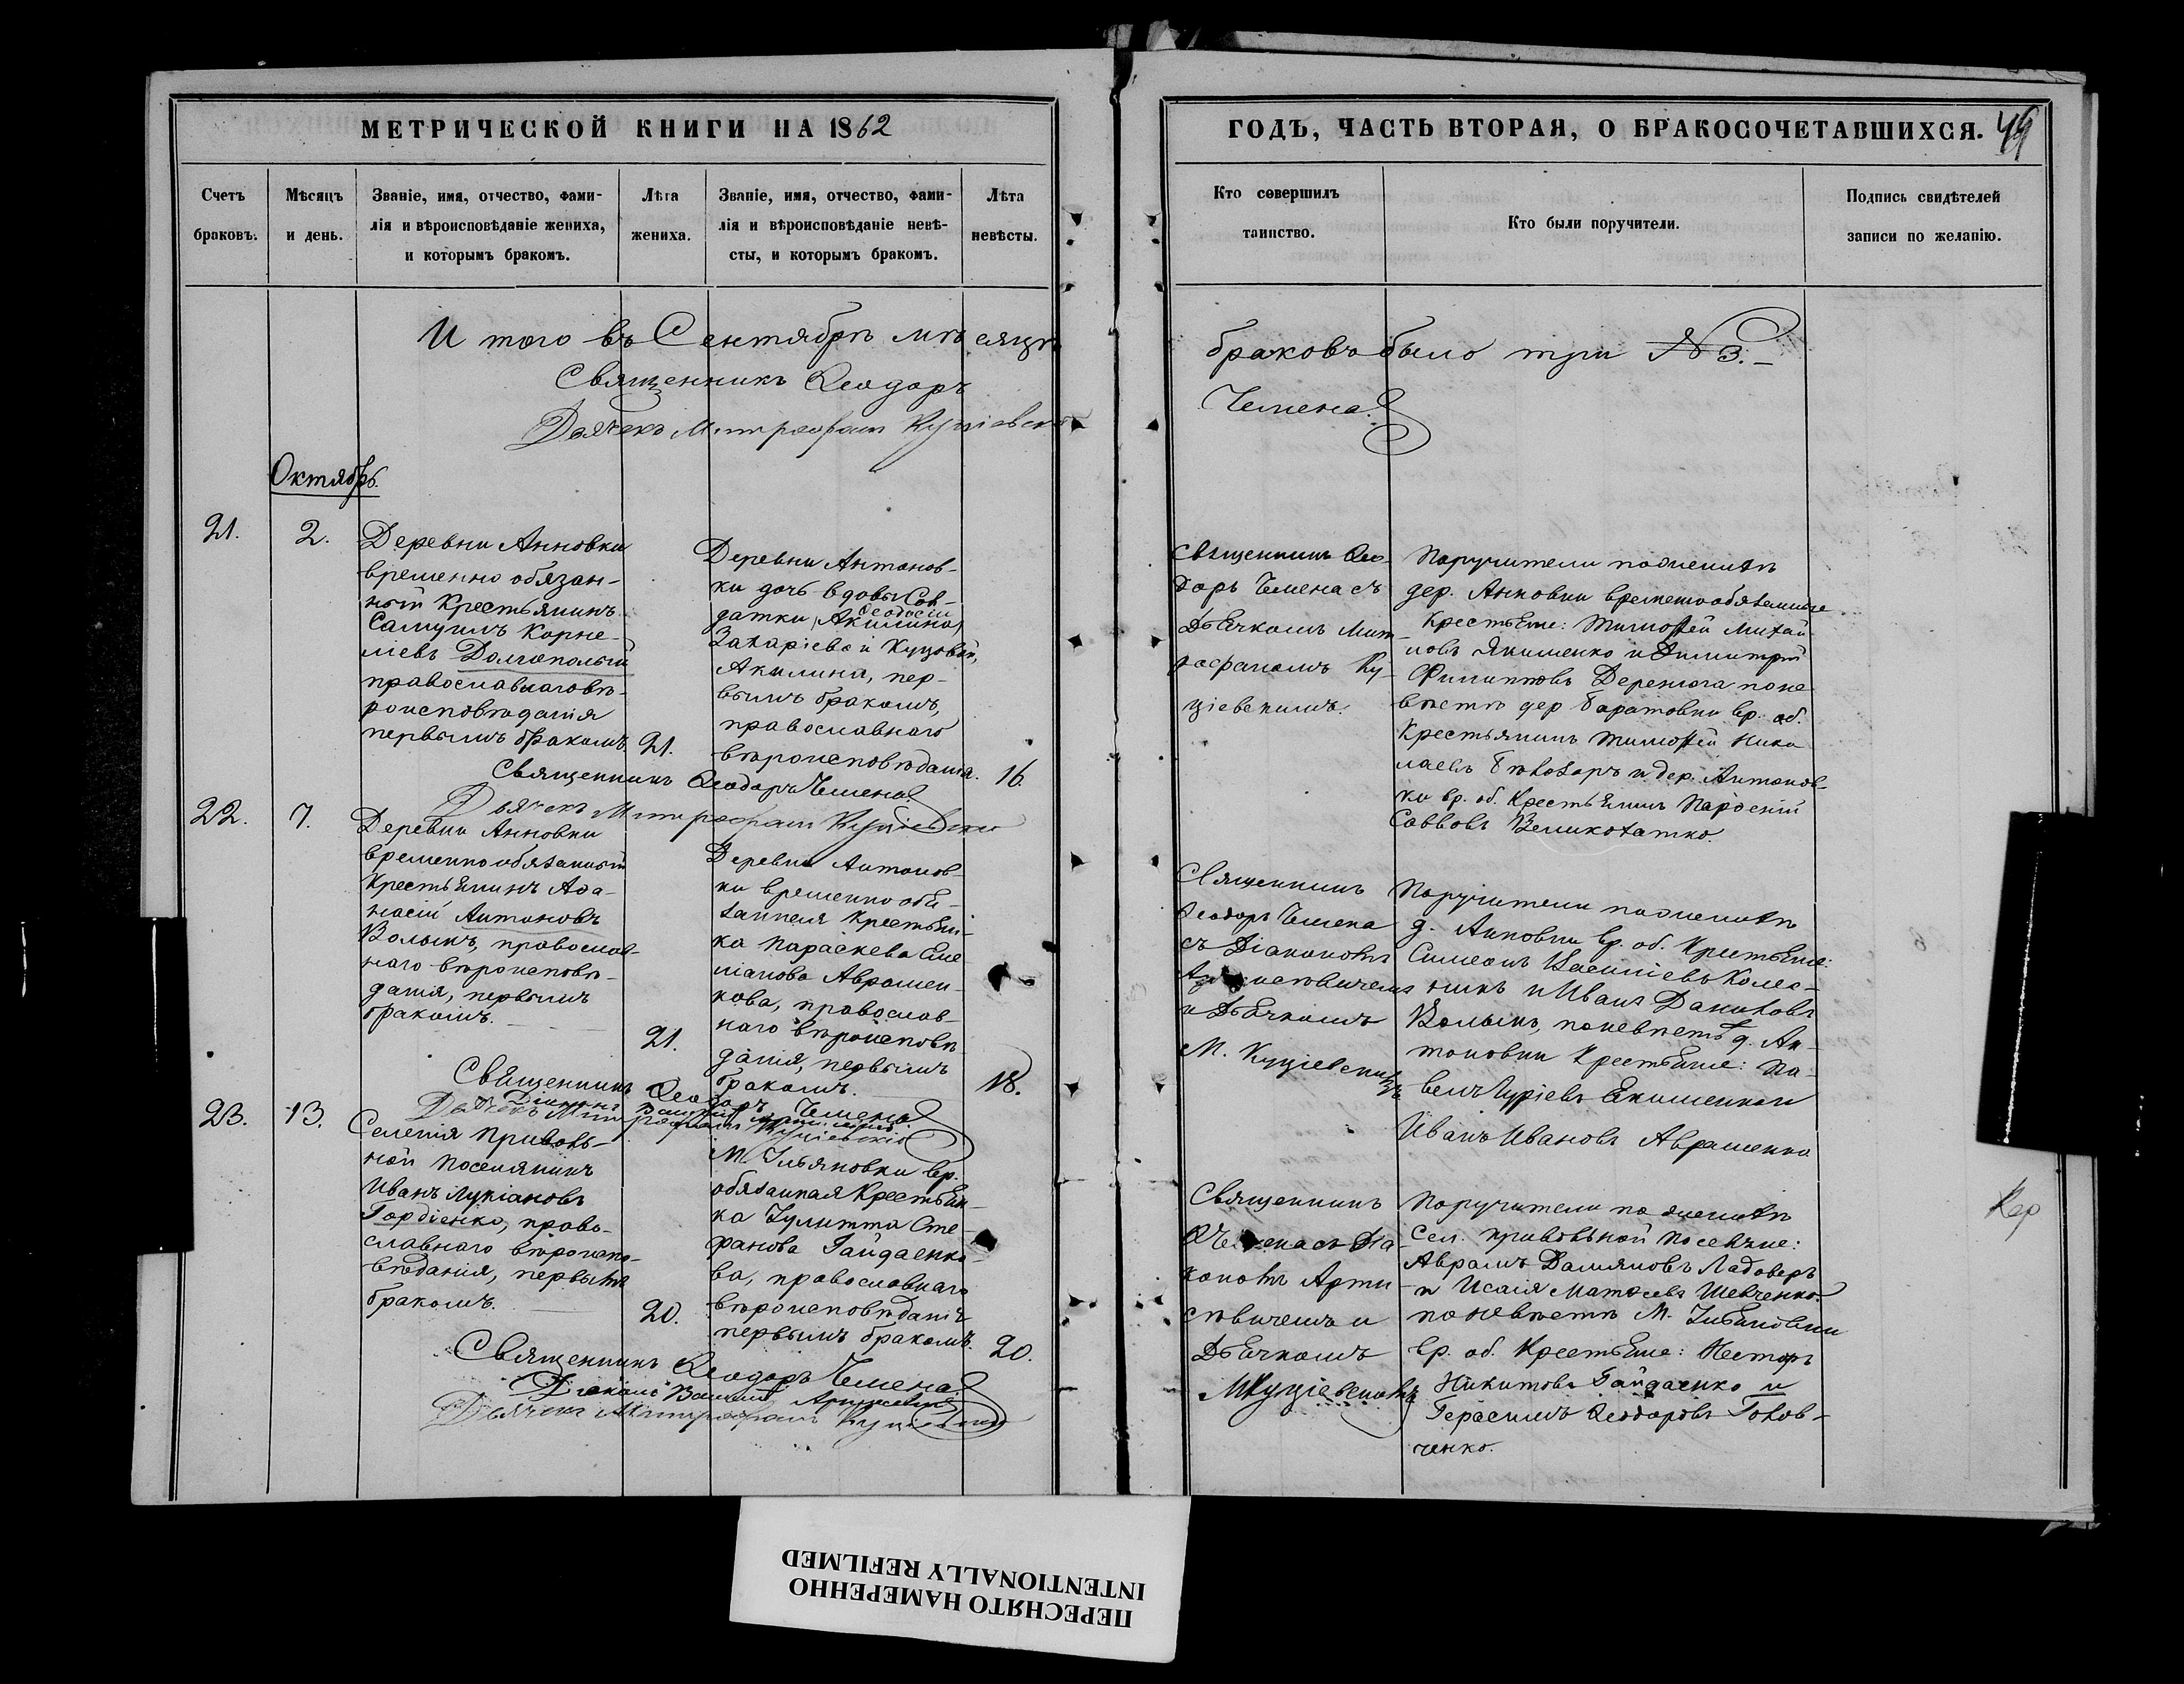 МЕТРИЧЕСКОЙ КНИГИ НА 1862
ГОДЪ, ЧАСТЬ ВТОРАЯ, О БРАКОСОЧЕТАВШИХСЯ. 49
Счетъ
браковъ.
Мѣсяцъ
и день.
Званіе, имя, отчество, фами-
лія и вѣроисповѣданіе жениха,
и которымъ бракомъ.
Лѣта
жениха.
Званіе, имя, отчество, фами-
лія и вѣроисповѣданіе невѣ-
сты, и которымъ бракомъ.
Лѣта
невѣсты.
Кто совершилъ
таинство.
Кто были поручители.
Подпись свидѣтелей
записи по желанію.
И того въ Сентябрѣ мѣсяцѣ
браковъ было три № 3.
Священникъ Ѳеодоръ
Чемена
Дьячекъ Митрофанъ
Октябрь.
21.
2.
Деревни Анновки
временно обязан-
ный Крестьянинъ
Самуилъ Корне-
ліевъ Долгополый
православнаго вѣ-
роисповѣданія
первымъ бракомъ
21.
Деревни Антонов-
ки дочь вдовы Сол-
датки Ѳеодосіи
Захаріевой Куцовой,
Акилина, пер-
вымъ бракомъ,
православнаго
вѣроисповѣданія.
16.
Священникъ Ѳео-
доръ Чемена съ
Дьячкомъ Мит-
рофаномъ Ку-
цієвскимъ.
Поручители по женихѣ
дер. Анновки временнообязанные
Крестьяне: Тимоѳей Михай-
ловъ Якименко и Димитрій
Филипповъ Деренюга по не-
вѣстѣ дер Баратовки вр. об.
Крестьянинъ Тимоѳей Нико-
лаевъ и дер. Антонов-
ки вр. об. Крестьянинъ
Саввовъ Великохатко.
Священникъ Ѳеодоръ Чемена
Дьячекъ Митрофанъ
22.
7.
Деревни Анновки
временнообязанный
Крестьянинъ Аѳа-
насій Антоновъ
Волыкъ, православ-
наго вѣроисповѣ-
данія, первымъ
бракомъ.
21.
Деревни Антонов-
ки временно обя-
занная Крестьян-
ка Параскева Еме
ліанова Авромен-
кова, православ-
наго вѣроисповѣ
данія, первымъ
бракомъ.
18.
Священникъ
Ѳеодоръ Чемена
съ Діакономъ
и Дьячкомъ
М.
Поручители по женихѣ
д. Анновки вр. об. Крестьяне:
Симеонъ Василіевъ Колес-
никъ и Иванъ Даниловъ
Волыкъ, по невѣстѣ д. Ан-
тоновки Крестьяне: Па-
велъ Гуріевъ
Иванъ Ивановъ Авраменко
Священникъ Ѳеодоръ Чемена
Дьячекъ
23.
13.
Селенія Приволь-
ной Поселянинъ
Иванъ Лукіановъ
Гордіенко, право-
славнаго вѣроиспо-
вѣданія, первымъ
бракомъ.
20.
М. Ульяновки вр.
обязанная Крестьян-
ка Іулитта Сте-
фанова Гайдаенко-
ва, православнаго
вѣроисповѣданія
первымъ бракомъ.
20.
Священникъ
Ѳ Чемена съ Діа-
кономъ Арти-
совичемъ и
Дьячкомъ
Поручители по женихѣ
Сел. Привольной Поселяне:
Аврамъ Даміановъ
и Исаія Матѳеевъ Шевченко.
по невѣстѣ М. Ульяновки
вр. об. Крестьяне: Несторъ
Никитовъ Гайдаенко и
Герасимъ Ѳеодоровъ Голов-
ченко.
Священникъ Ѳеодоръ Чемена
Діаконъ
Дьячекъ Митрофанъ
ПЕРЕСНЯТО НАМЕРЕННО
INTENTIONALLY REFILMED